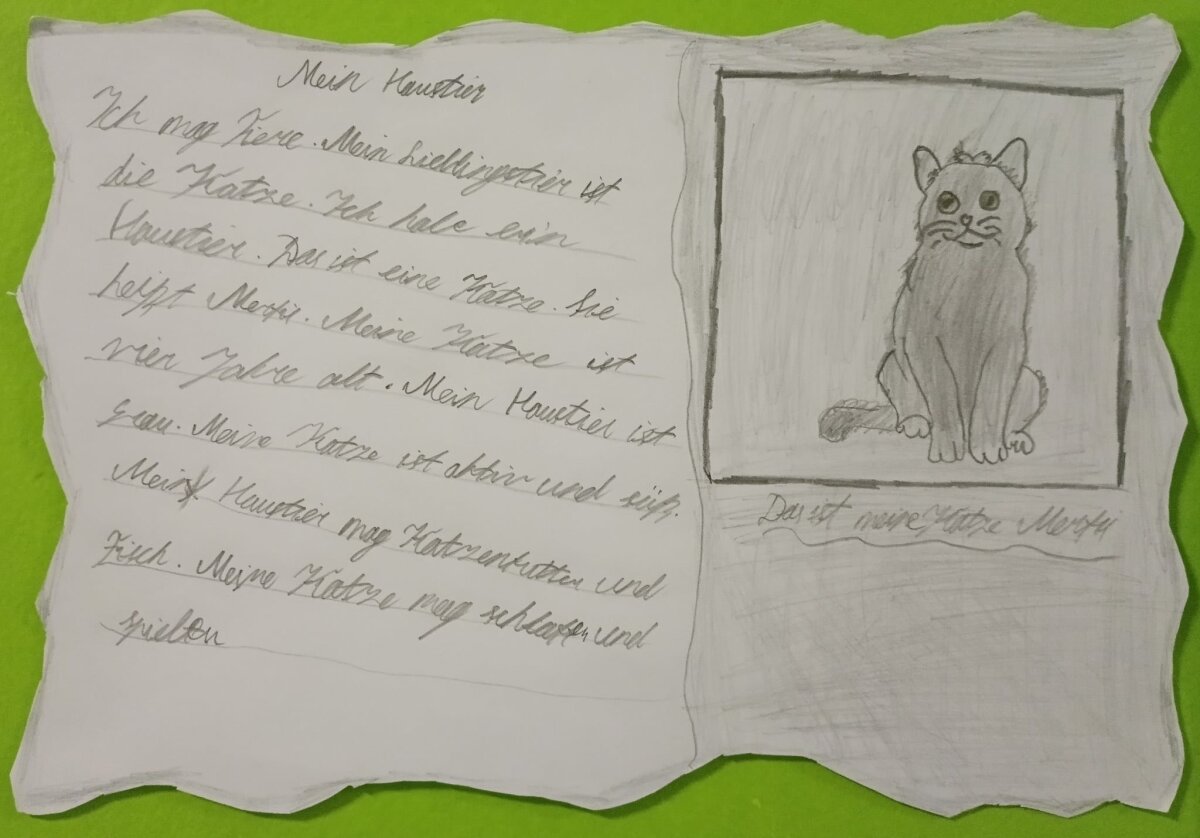 Mein Haustier
Ich mag Tiere. Mein Lieblingstier ist
die Katze. Ich habe ein
Haustier. Das ist eine Katze. Sie
heißt. Meine Katze ist
vier Jahre alt. Mein Haustier ist
grau. Meine Katze ist aktiv und süß.
Mein Haustier mag Katzenfutter und
Fisch. Meine Katze mag schlafen und
spielen
Das ist meine Katze